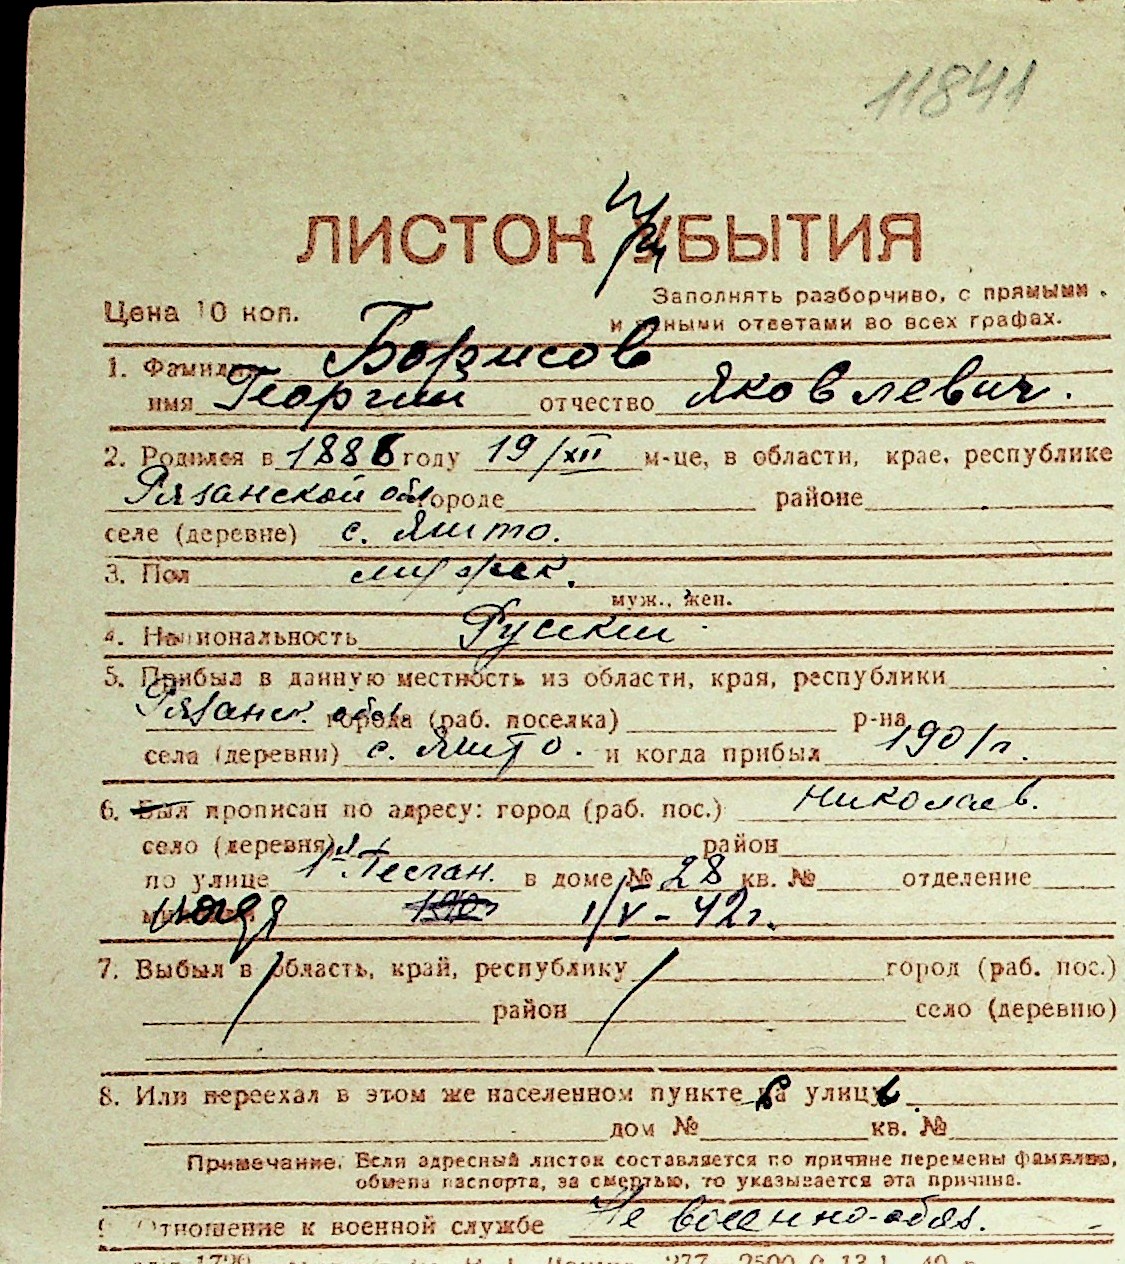 11841
ЛИСТОК УБЫТИЯ
Цена 10 коп. Заполнять разборчиво, с прямыми
и ясными ответами во всех графах.
1. Фамилия Борисов
имя Георгий отчество Яковлевич.
2. Родился в 1886 году 19/XII м-це, в области, крае, республике
Рязанской обл городе районе
селе (деревне) с. Яшто.
3. Пол мужск.
муж., жен.
4. Национальность Русский
5. Прибыл в данную местность из области, края, республики
Рязанск. обл. города (раб. поселка) р-на
села (деревни) с. Яшто. и когда прибыл 1901г.
6. Был прописан по адресу: город (раб. пос.) Николаев.
село (деревня) район
по улице 1я Песчан. в доме № 28 кв. № отделение
1/V-42г.
7. Выбыл в область, край, республику город (раб. пос.)
район село (деревню)
8. Или переехал в этом же населенном пункте на улицу
дом № кв. №
Примечание. Если адресный листок составляется по причине перемены фамилии,
обмена паспорта, за смертью, то указывается эта причина.
9. Отношение к военной службе Не военно-обяз.